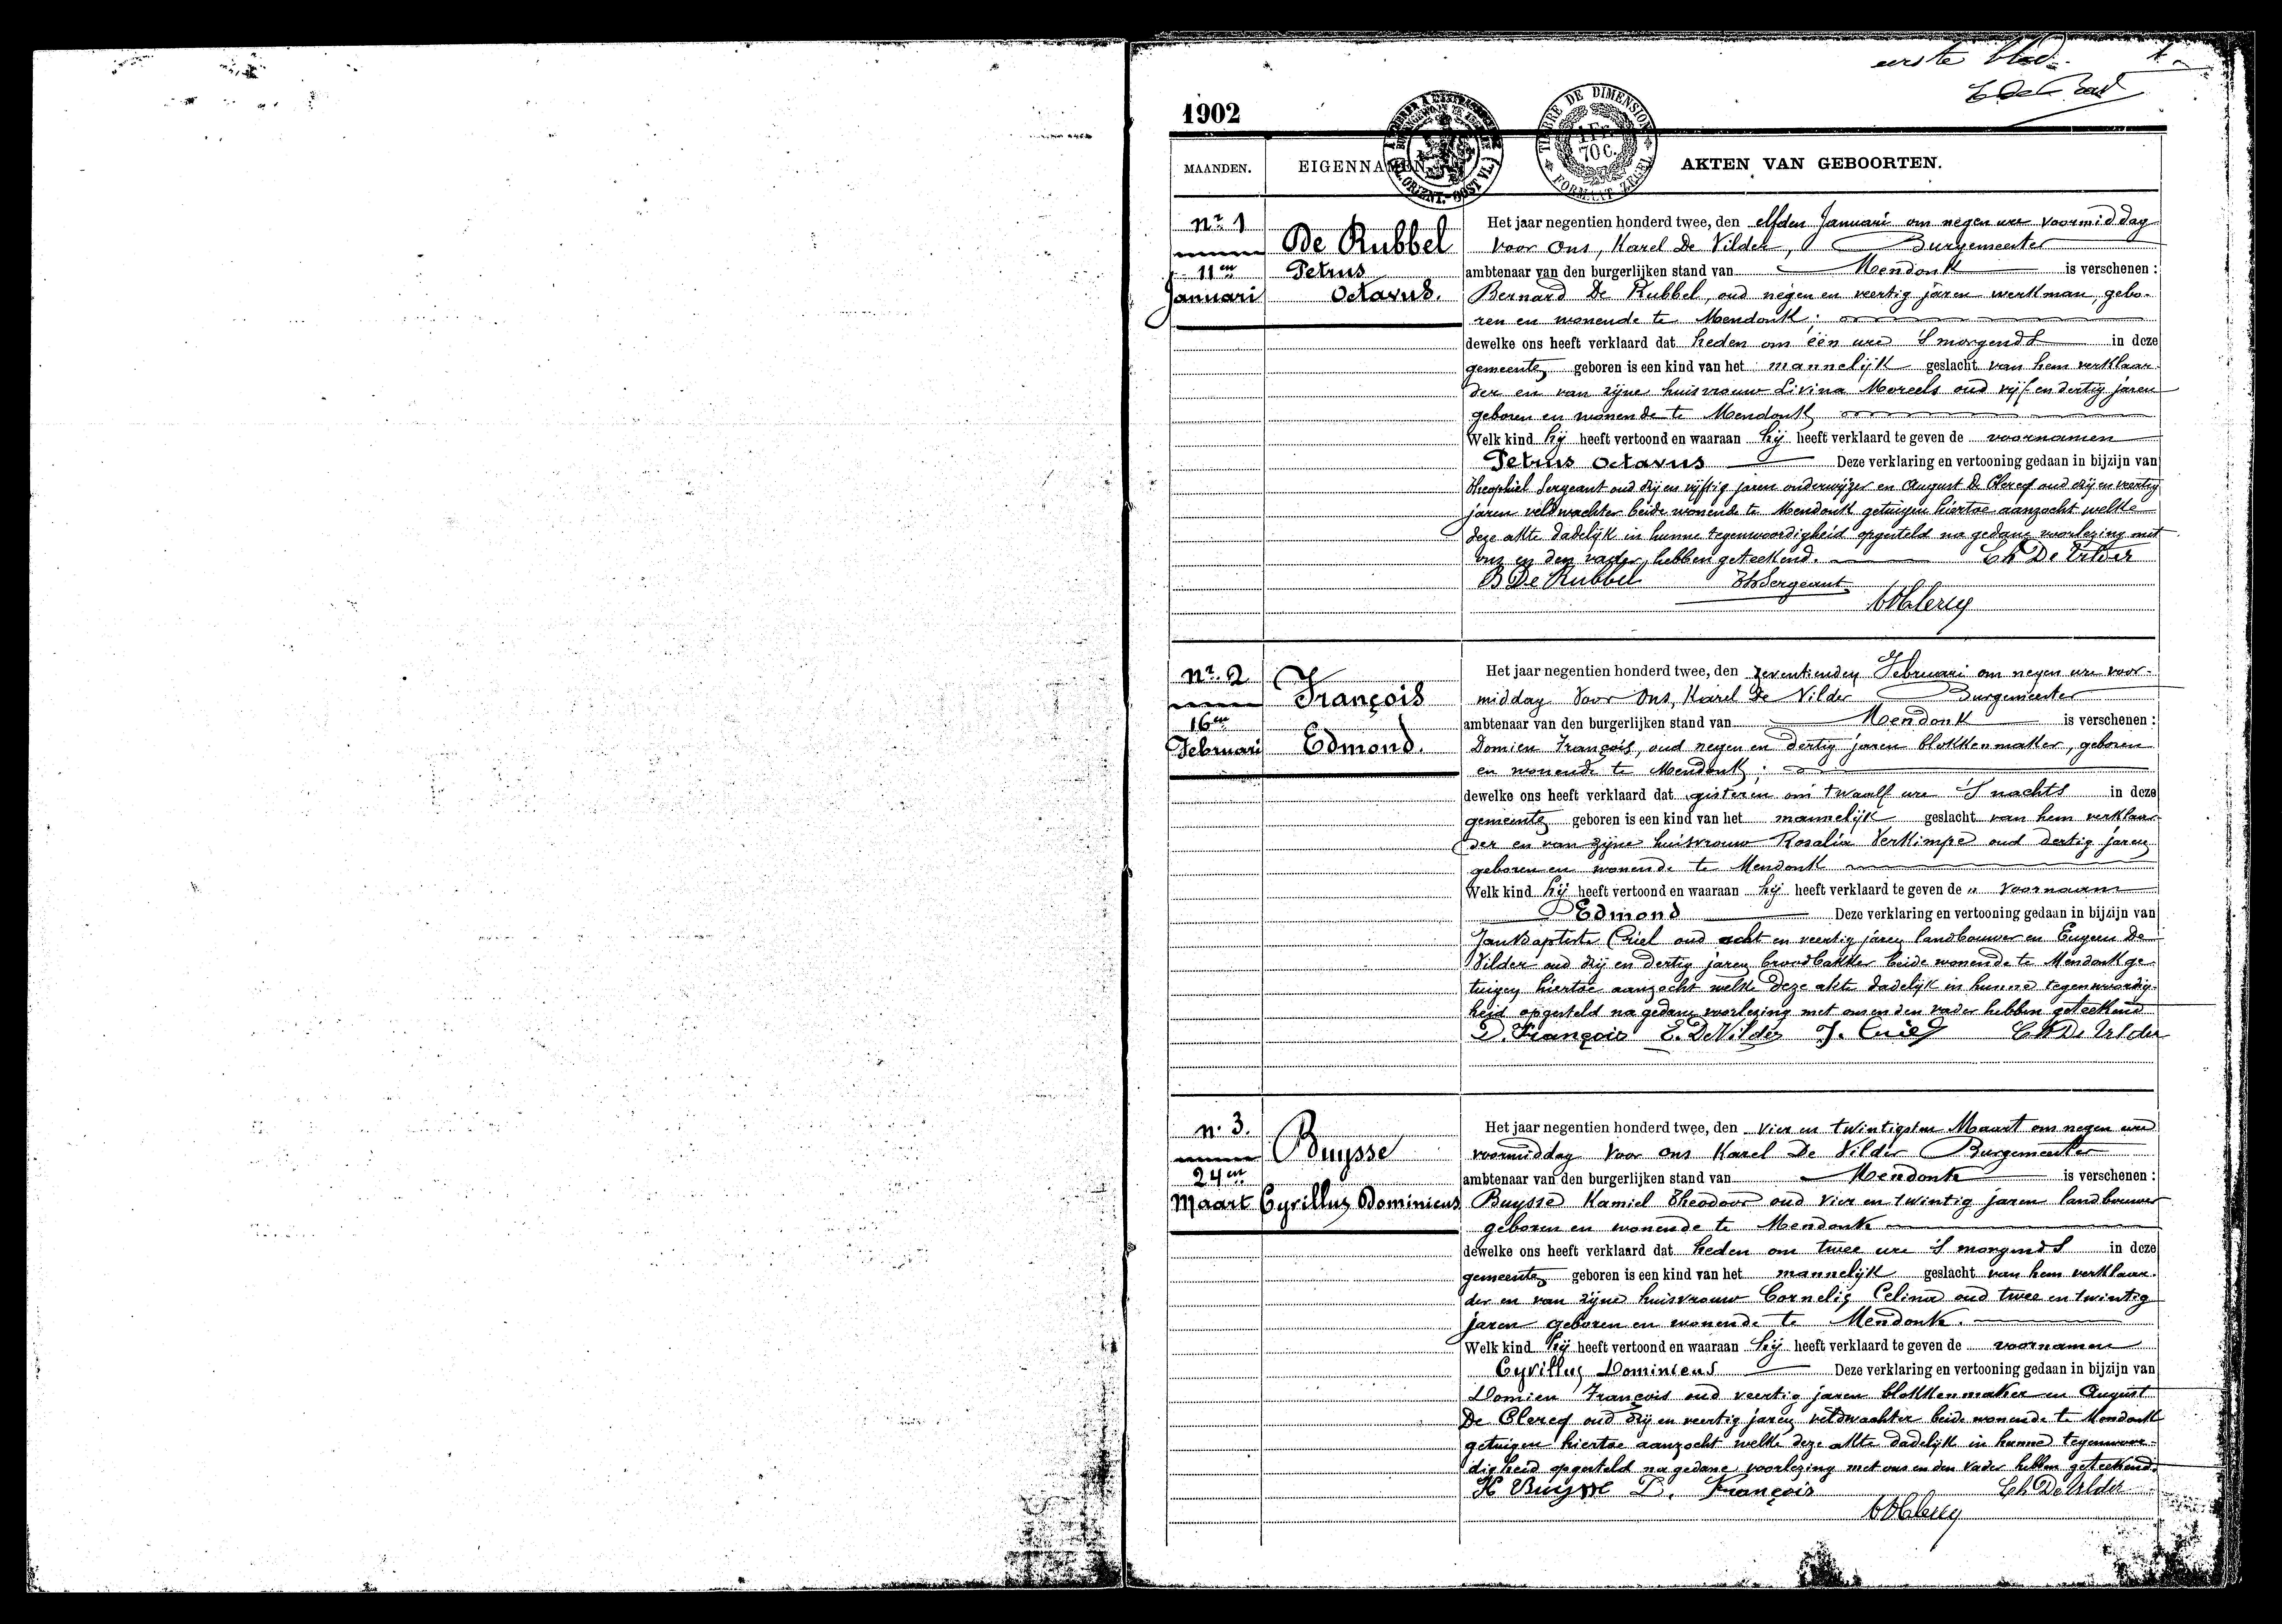 eerste blad. 1.
1902
TIMBRE DE DIMENSION
1 Fr.
70 C.
FORMAAT ZEGEL
MAANDEN. EIGENNAMEN. AKTEN VAN GEBOORTEN.
Nr. 1
11en
Januari
De Rubbel
Petrus
Octavus.
Het jaar negentien honderd twee, den elfden Januari om negen ure voormiddag
voor Ons, Karel De Vilder, Burgemeester
ambtenaar van den burgerlijken stand van Mendonk is verschenen :
Bernard De Rubbel, oud negen en veertig jaren werkman, gebo-
ren en wonende te Mendonk;
dewelke ons heeft verklaard dat heden om één ure 's morgends in deze
gemeente geboren is een kind van het mannelijk geslacht van hem verklaar-
der en van zijne huisvrouw Livina Moreels oud vijf en dertig jaren
geboren en wonende te Mendonk
Welk kind hij heeft vertoond en waaraan hij heeft verklaard te geven de voornamen
Petrus Octavus Deze verklaring en vertooning gedaan in bijzijn van
Theophiel Sergeant oud drij en vijftig jaren onderwijzer en August De Clercq oud drij en veertig
jaren veldwachter beide wonende te Mendonk getuigen hiertoe aanzocht welke
deze akte dadelijk in hunne tegenwoordigheid opgesteld na gedane voorlezing met
ons en den vader, hebben geteekend. Ch De Vilder
B De Rubbel Th Sergeant
A De Clercq
Nr. 2
16en
Februari
François
Edmond.
Het jaar negentien honderd twee, den zeventienden Februari om negen ure voor-
middag Voor Ons, Karel De Vilder Burgemeester
ambtenaar van den burgerlijken stand van Mendonk is verschenen :
Domien François, oud negen en dertig jaren blokkenmaker, geboren
en wonende te Mendonk;
dewelke ons heeft verklaard dat gisteren om twaalf ure 's nachts in deze
gemeente geboren is een kind van het mannelijk geslacht van hem verklaar-
der en van zijne huisvrouw Rosalia Verkimpe oud dertig jaren
geboren en wonende te Mendonk
Welk kind hij heeft vertoond en waaraan hij heeft verklaard te geven de " voornaam
Edmond Deze verklaring en vertooning gedaan in bijzijn van
Jan Baptiste Criel oud acht en veertig jaren landbouwer en Eugeen De
Vilder oud drij en dertig jaren broodbakker beide wonende te Mendonk ge-
tuigen hiertoe aanzocht welke deze akte dadelijk in hunne tegenwoordig-
heid opgesteld na gedane voorlezing met ons en den vader hebben geteekend
D. François E. De Vilder J. Criel Ch De Vilder
N. 3.
24en
Maart
Buysse
Cyrillus Dominicus
Het jaar negentien honderd twee, den vier en twintigsten Maart om negen ure
voormiddag Voor Ons Karel De Vilder Burgemeester
ambtenaar van den burgerlijken stand van Mendonk is verschenen :
Buysse Kamiel Theodoor oud vier en twintig jaren landbouwer
geboren en wonende te Mendonk
dewelke ons heeft verklaard dat heden om twee ure 's morgends in deze
gemeente geboren is een kind van het mannelijk geslacht van hem verklaar-
der en van zijne huisvrouw Cornelis Celina oud twee en twintig
jaren geboren en wonende te Mendonk.
Welk kind hij heeft vertoond en waaraan hij heeft verklaard te geven de voornamen
Cyrillus Dominicus Deze verklaring en vertooning gedaan in bijzijn van
Domien François oud veertig jaren blokkenmaker en August
De Clercq oud drij en veertig jaren veldwachter beide wonende te Mendonk
getuigen hiertoe aanzocht welke deze akte dadelijk in hunne tegenwoor-
digheid opgesteld na gedane voorlezing met ons en den vader hebben geteekend.
K Buysse D. François Ch De Vilder
A De Clercq